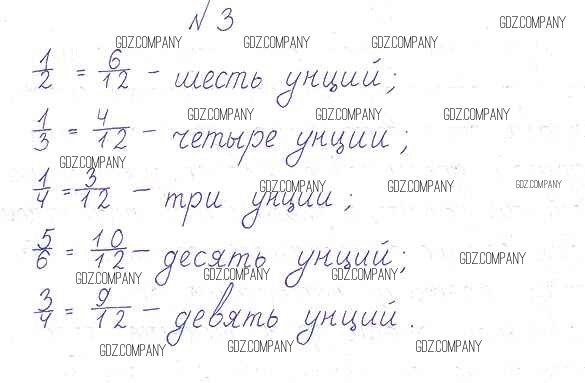 № 3
GDZ.COMPANY
GDZ.COMPANY GDZ.COMPANY GDZ.COMPANY
1/2 = 6/12 - шесть унций;
GDZ.COMPANY GDZ.COMPANY GDZ.COMPANY
1/3 = 4/12 - четыре унции;
GDZ.COMPANY
1/4 = 3/12 - три унции;
GDZ.COMPANY GDZ.COMPANY GDZ.COMPANY
5/6 = 10/12 - десять унций;
GDZ.COMPANY
GDZ.COMPANY GDZ.COMPANY GDZ.COMPANY
3/4 = 9/12 - девять унций.
GDZ.COMPANY GDZ.COMPANY GDZ.COMPANY